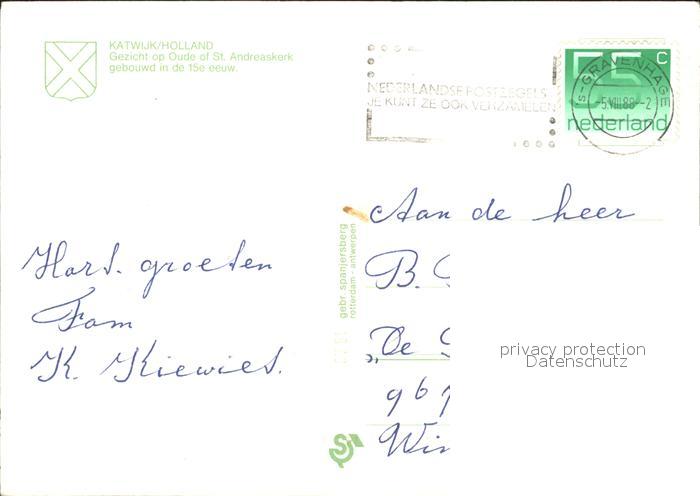 KATWIJK/HOLLAND
Gezicht op Oude of St. Andreaskerk
gebouwd in de 15e eeuw.
NEDERLANDSE POSTZEGELS
JE KUNT ZE OOK VERZAMELEN
55 c
nederland
's-GRAVENHAGE
-5.VIII.88--2
Aan de heer
B.
"De
Win
Hart. groeten
Fam
K. Kiewiet.
gebr. spanjersberg
rotterdam - antwerpen
privacy protection
Datenschutz